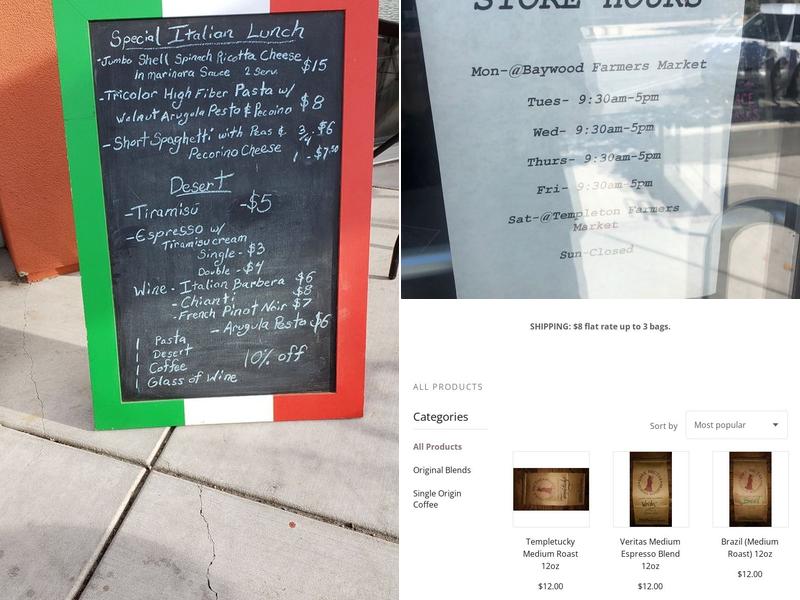 Special Italian Lunch
-Jumbo Shell Spinach Ricotta Cheese
in marinara Sauce 2 Serv. $15
-Tricolor High Fiber Pasta w/
Walnut Arugola Pesto & Pecoino $8
-Short Spaghetti with Peas & 3/4 - $6
Pecorino Cheese 1 - $7.50
Desert
-Tiramisu -$5
-Espresso w/
Tiramisu cream
Single - $3
Double - $4
Wine - Italian Barbera $6
- Chianti $8
- French Pinot Noir $7
- Arugula Pesto $6
1 Pasta
1 Desert
1 Coffee
1 Glass of Wine
10% off
STORE HOURS
Mon-@Baywood Farmers Market
Tues- 9:30am-5pm
Wed- 9:30am-5pm
Thurs- 9:30am-5pm
Fri- 9:30am-5pm
Sat-@Templeton Farmers
Market
Sun-Closed
SHIPPING: $8 flat rate up to 3 bags.
ALL PRODUCTS
Categories
All Products
Original Blends
Single Origin
Coffee
Sort by Most popular
Templetucky
Medium Roast
12oz
$12.00
Veritas Medium
Espresso Blend
12oz
$12.00
Brazil (Medium
Roast) 12oz
$12.00